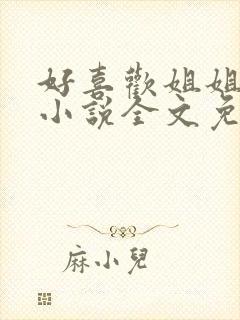 好喜歡姐姐
小說全文免
麻小兒